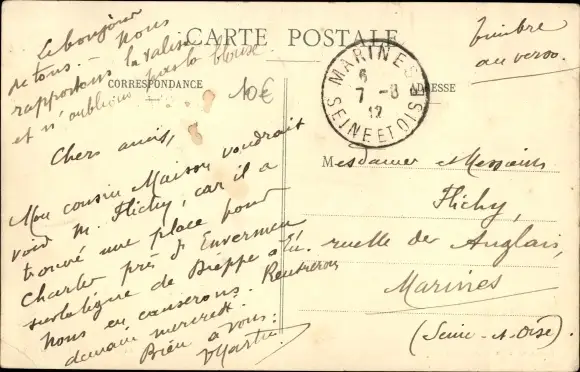 Le bonjour
de tous. – Nous
rapportons la valise
et n'oublions pas la blouse.
CARTE POSTALE
Timbre
au verso.
CORRESPONDANCE
ADRESSE
10€
MARINES
6
7 -8
12
SEINE ET OISE
Chers amis,
Mon cousin Maison voudrait
voir M. Flichy, car il a
trouvé une place pour
Charles près d'Envermeu
sur la ligne de Dieppe à Eu.
Nous en causerons. Rentrerons
demain mercredi.
Bien à vous:
Martin
Mesdames et Messieurs
Flichy,
ruelle des Anglais,
Marines
(Seine-et-Oise)